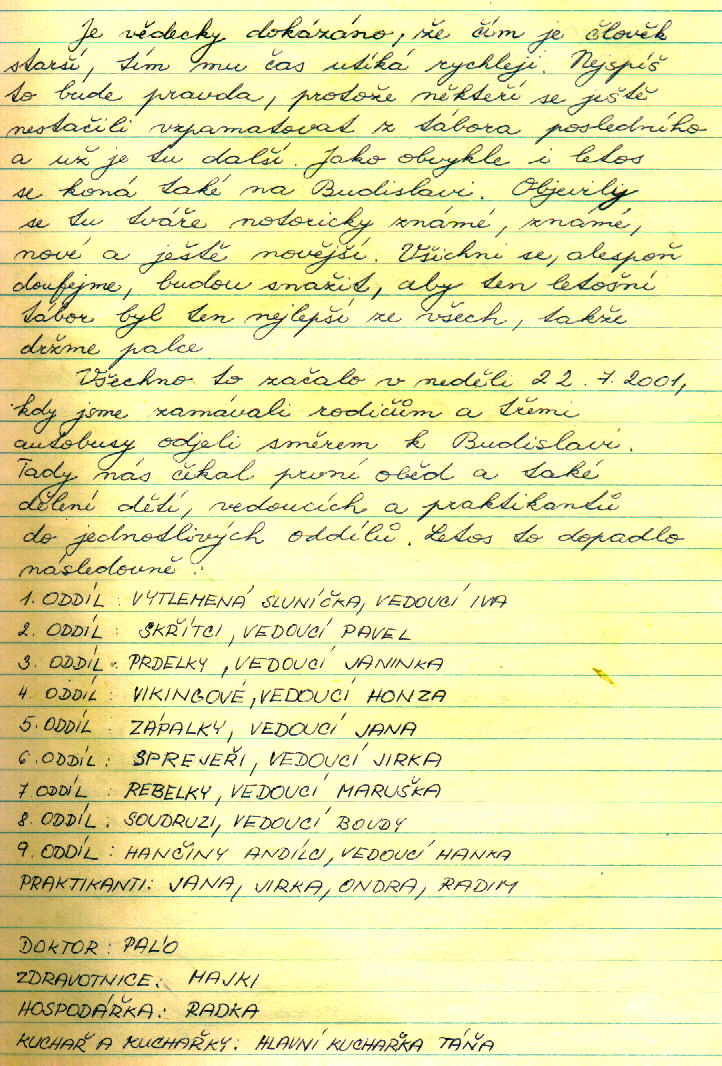 Je vědecky dokázáno, že čím je člověk
starší, tím mu čas utíká rychleji. Nejspíš
to bude pravda, protože někteří se ještě
nestačili vzpamatovat z tábora posledního
a už je tu další. Jako obvykle i letos
se koná také na Budislavi. Objevily
se tu tváře notoricky známé, známé,
nové a ještě novější. Všichni se, alespoň
doufejme, budou snažit, aby ten letošní
tábor byl ten nejlepší ze všech, takže
držme palce
Všechno to začalo v neděli 22.7.2001,
kdy jsme zamávali rodičům a třemi
autobusy odjeli směrem k Budislavi.
Tady nás čekal první oběd a také
dělení dětí, vedoucích a praktikantů
do jednotlivých oddílů. Letos to dopadlo
následovně:
1. ODDÍL: VYTLEMENÁ SLUNÍČKA, VEDOUCÍ IVA
2. ODDÍL: SKŘÍTCI, VEDOUCÍ PAVEL
3. ODDÍL: PRDELKY, VEDOUCÍ JANINKA
4. ODDÍL: VIKINGOVÉ, VEDOUCÍ HONZA
5. ODDÍL: ZÁPALKY, VEDOUCÍ JANA
6. ODDÍL: SPREJEŘI, VEDOUCÍ JIRKA
7. ODDÍL: REBELKY, VEDOUCÍ MARUŠKA
8. ODDÍL: SOUDRUZI, VEDOUCÍ BOUDY
9. ODDÍL: HANČINY ANDÍLCI, VEDOUCÍ HANKA
PRAKTIKANTI: JANA, JIRKA, ONDRA, RADIM
DOKTOR: PAL'O
ZDRAVOTNICE: MAJKI
HOSPODÁŘKA: RADKA
KUCHAŘ A KUCHAŘKY: HLAVNÍ KUCHAŘKA TÁŇA